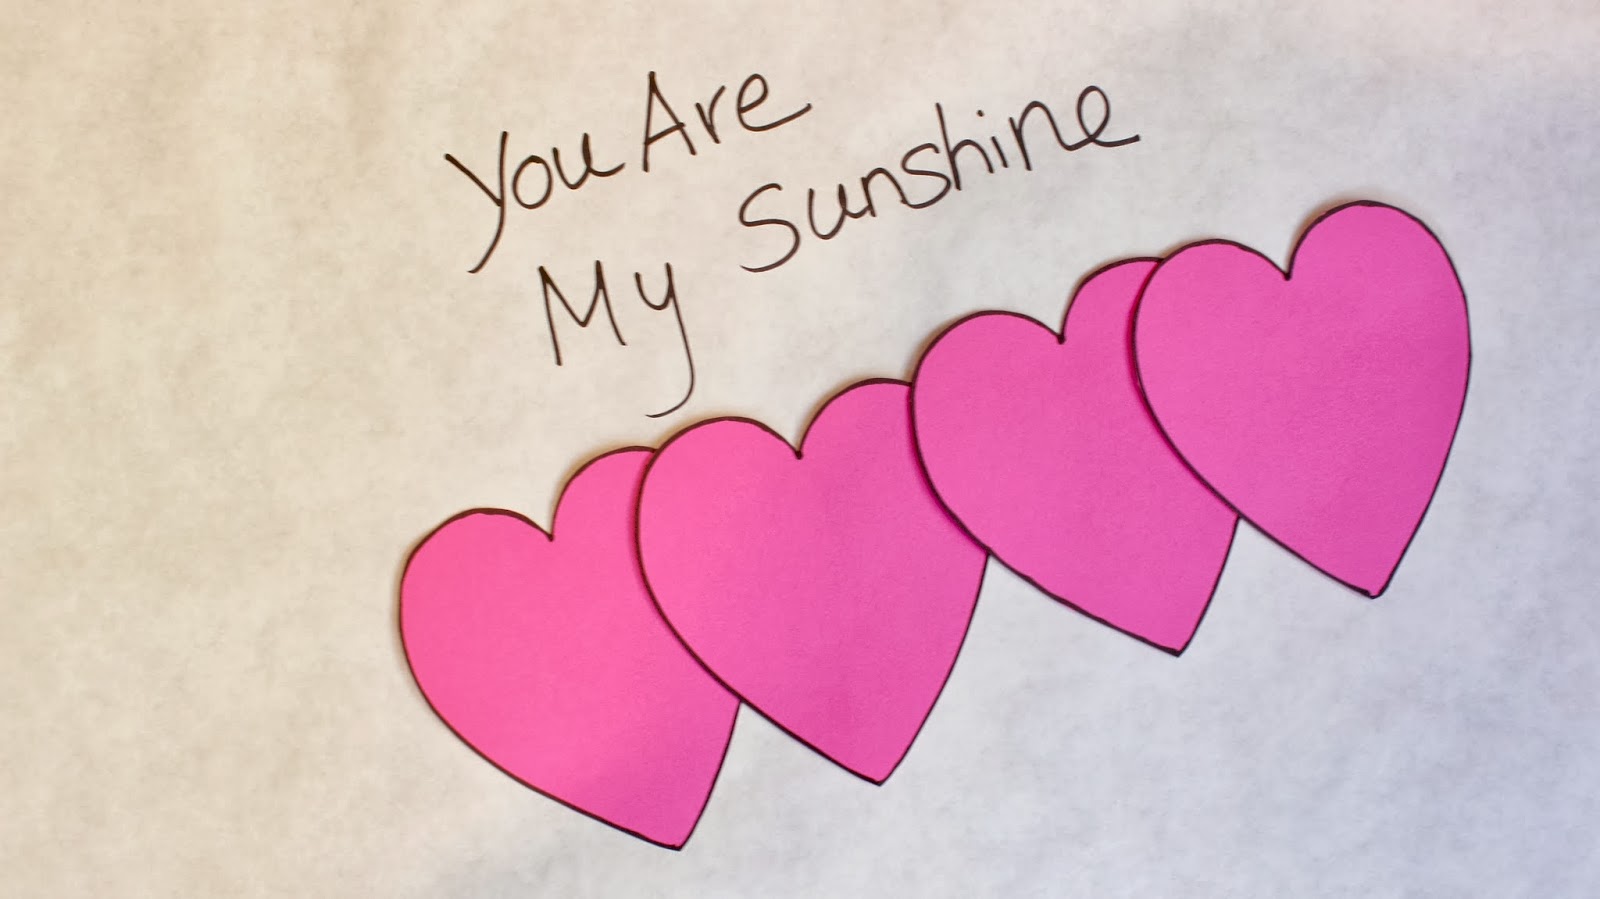 You Are
My Sunshine